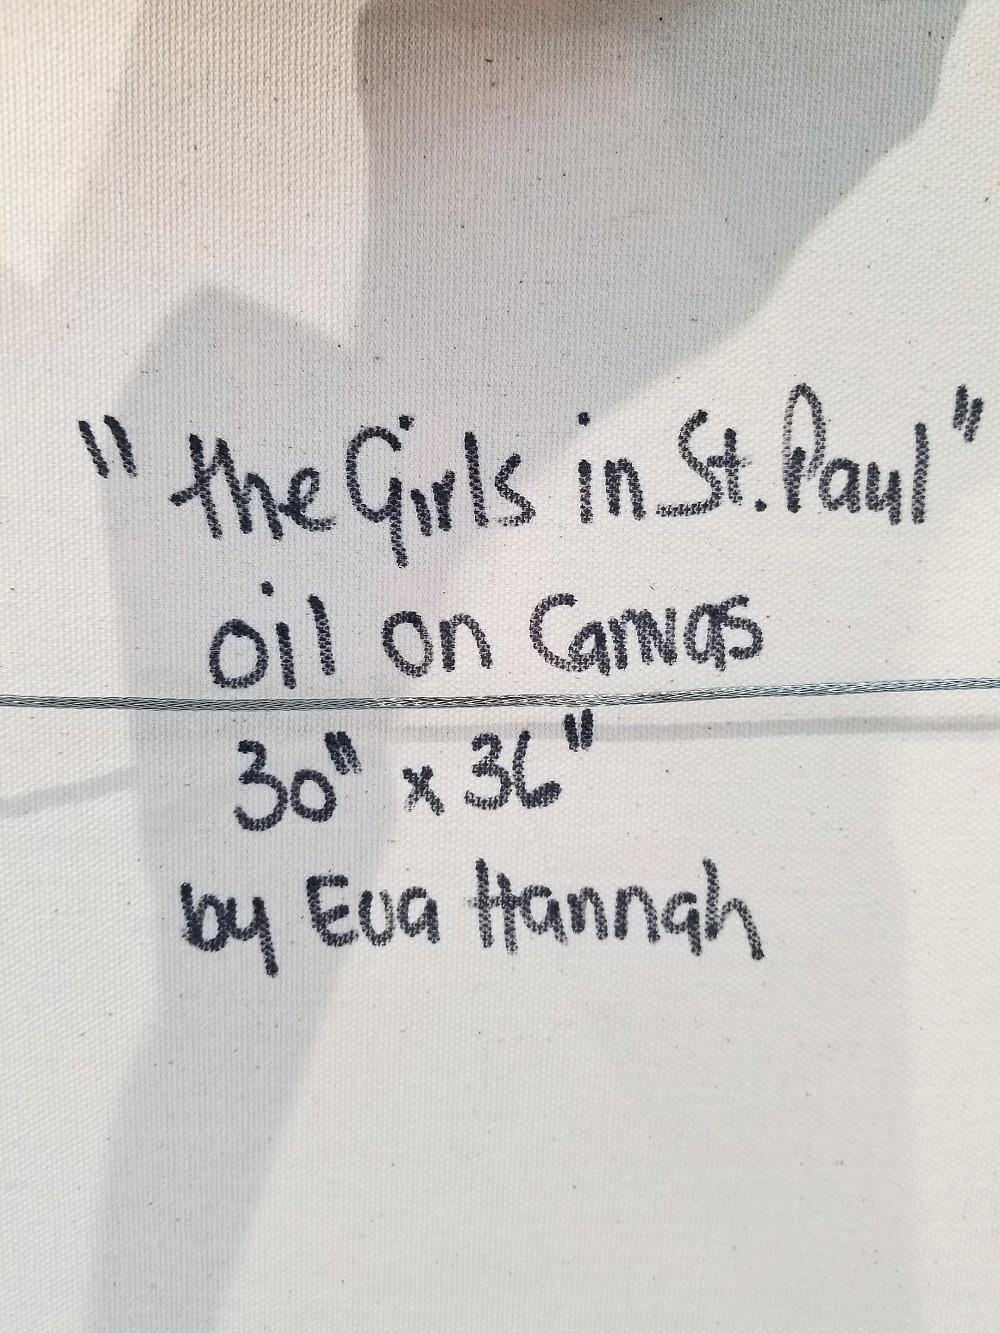 "the Girls in St. Paul"
oil on Canvas
30" x 36"
by Eva Hannah